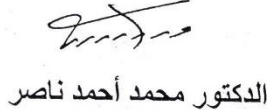 الدكتور محمد أحمد ناصر